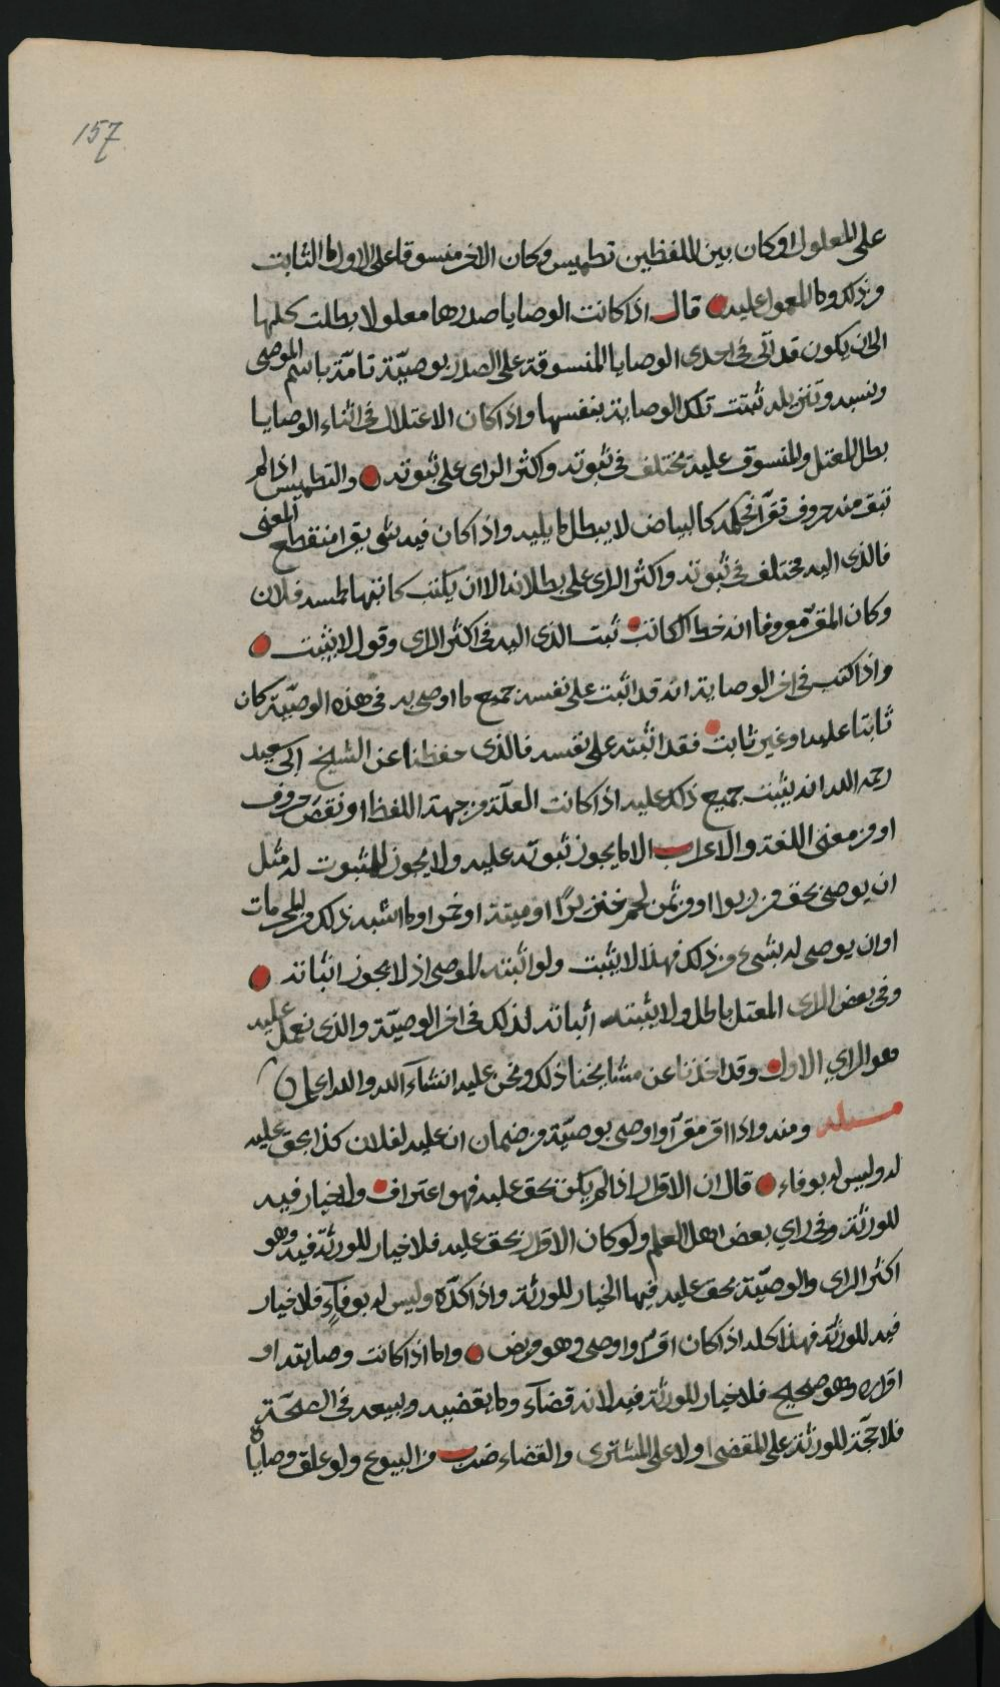 157
على المعلول او كان بين اللفظين تطميس وكان الاخر منسوقا على الاول فالثابت
من ذلك وما المعمول عليه قال اذا كانت الوصايا صدرها معلولا بطلت كلها
الى ان يكون قد اتى في احدى الوصايا المنسوقة على الصدر بوصيّة تامّة باسم الموصى
ونسبه وتنزيله ثبتت تلك الوصاية بنفسها واذا كان الاعتلال في اثناء الوصايا
بطل المعتل والمنسوق عليه مختلف في ثبوته واكثر الراى على ثبوته والتطميس اذا لم
تبق منه حروف تقرا فحكمه كالبياض لا يبطل ما يليه واذا كان فيه شى يقرا منقطع المعنى
فالذى اليه مختلف في ثبوته واكثر الراى على بطلانه الا ان يكتب كاتبها طمسه فلان
وكان المقرّ معروفا انه خط الكاتب ثبت الذى اليه فى اكثر الراى وقول لا يثبت
واذا كتب فى اخر الوصاية انه قد اثبت على نفسه جميع ما اوصى به فى هذه الوصيّة كان
ثابتا عليه او غير ثابت فقد اثبته على نفسه فالذى حفظنا عن الشيخ ابى سعيد
رحمه الله انه يثبت جميع ذلك عليه اذا كانت العلّة من جهة اللفظ او نقص حروف
او من معنى اللغة والاعراب الا ما يجوز ثبوته عليه ولا يجوز للمثبوت له مثل
ان يوصى بحق من ربوا او من ثمن لحم خنزير او ميتة او خمر او ما اشبه ذلك من المحرمات
او ان يوصى له بشىء من ذلك فهذا لا يثبت ولو اثبته الموصى اذ لا يجوز اثباته
وفى بعض الراى المعتل باطل ولا يثبته اثباته لذلك فى اخر الوصيّة والذى نعمل عليه
هو الراي الاول وقد اخذنا عن مشايخنا ذلك ونحن عليه انشاء الله والله اعلم
مسئله ومنه واذا اقر مقرّ او اوصى بوصيّة من ضمان ان عليه لفلان كذا بحق عليه
له وليس له بوفاء قال ان الاقرار اذا لم يكن بحق عليه فهو اعتراف ولا خيار فيه
للورثة وفى راي بعض اهل العلم ولو كان الاقرار بحق عليه فلا خيار للورثة فيه وهو
اكثر الراى والوصيّة بحق عليه فيها الخيار للورثة واذا اكدّه وليس له بوفاءٍ فلا خيار
فيه للورثة فهذا كله اذا كان اقر او اوصى وهو مريض واما اذا كانت وصايته او
اقراره وهو صحيح فلا خيار للورثة فيه لانه قضاء وما يقضيه ويبيعه فى الصحّة
فلا حجّة للورثة على المقضى ولا على المشترى والقضاء ضرب من البيوع ولو علق وصايا